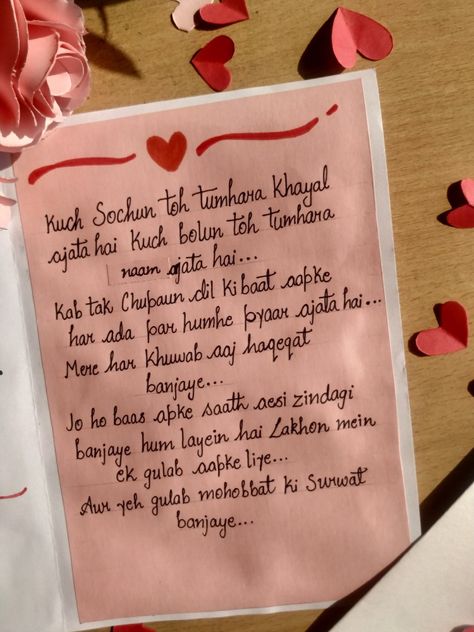 Kuch Sochun toh tumhara Khayal
ajata hai Kuch bolun toh tumhara
naam ajata hai...
Kab tak Chupaun dil Ki baat aapke
har ada par humhe pyaar ajata hai...
Mere har Khuwab aaj haqeqat
banjaye...
Jo ho baas apke saath aesi zindagi
banjaye hum layein hai Lakhon mein
ek gulab aapke liye...
Aur yeh gulab mohobbat ki Surwat
banjaye...